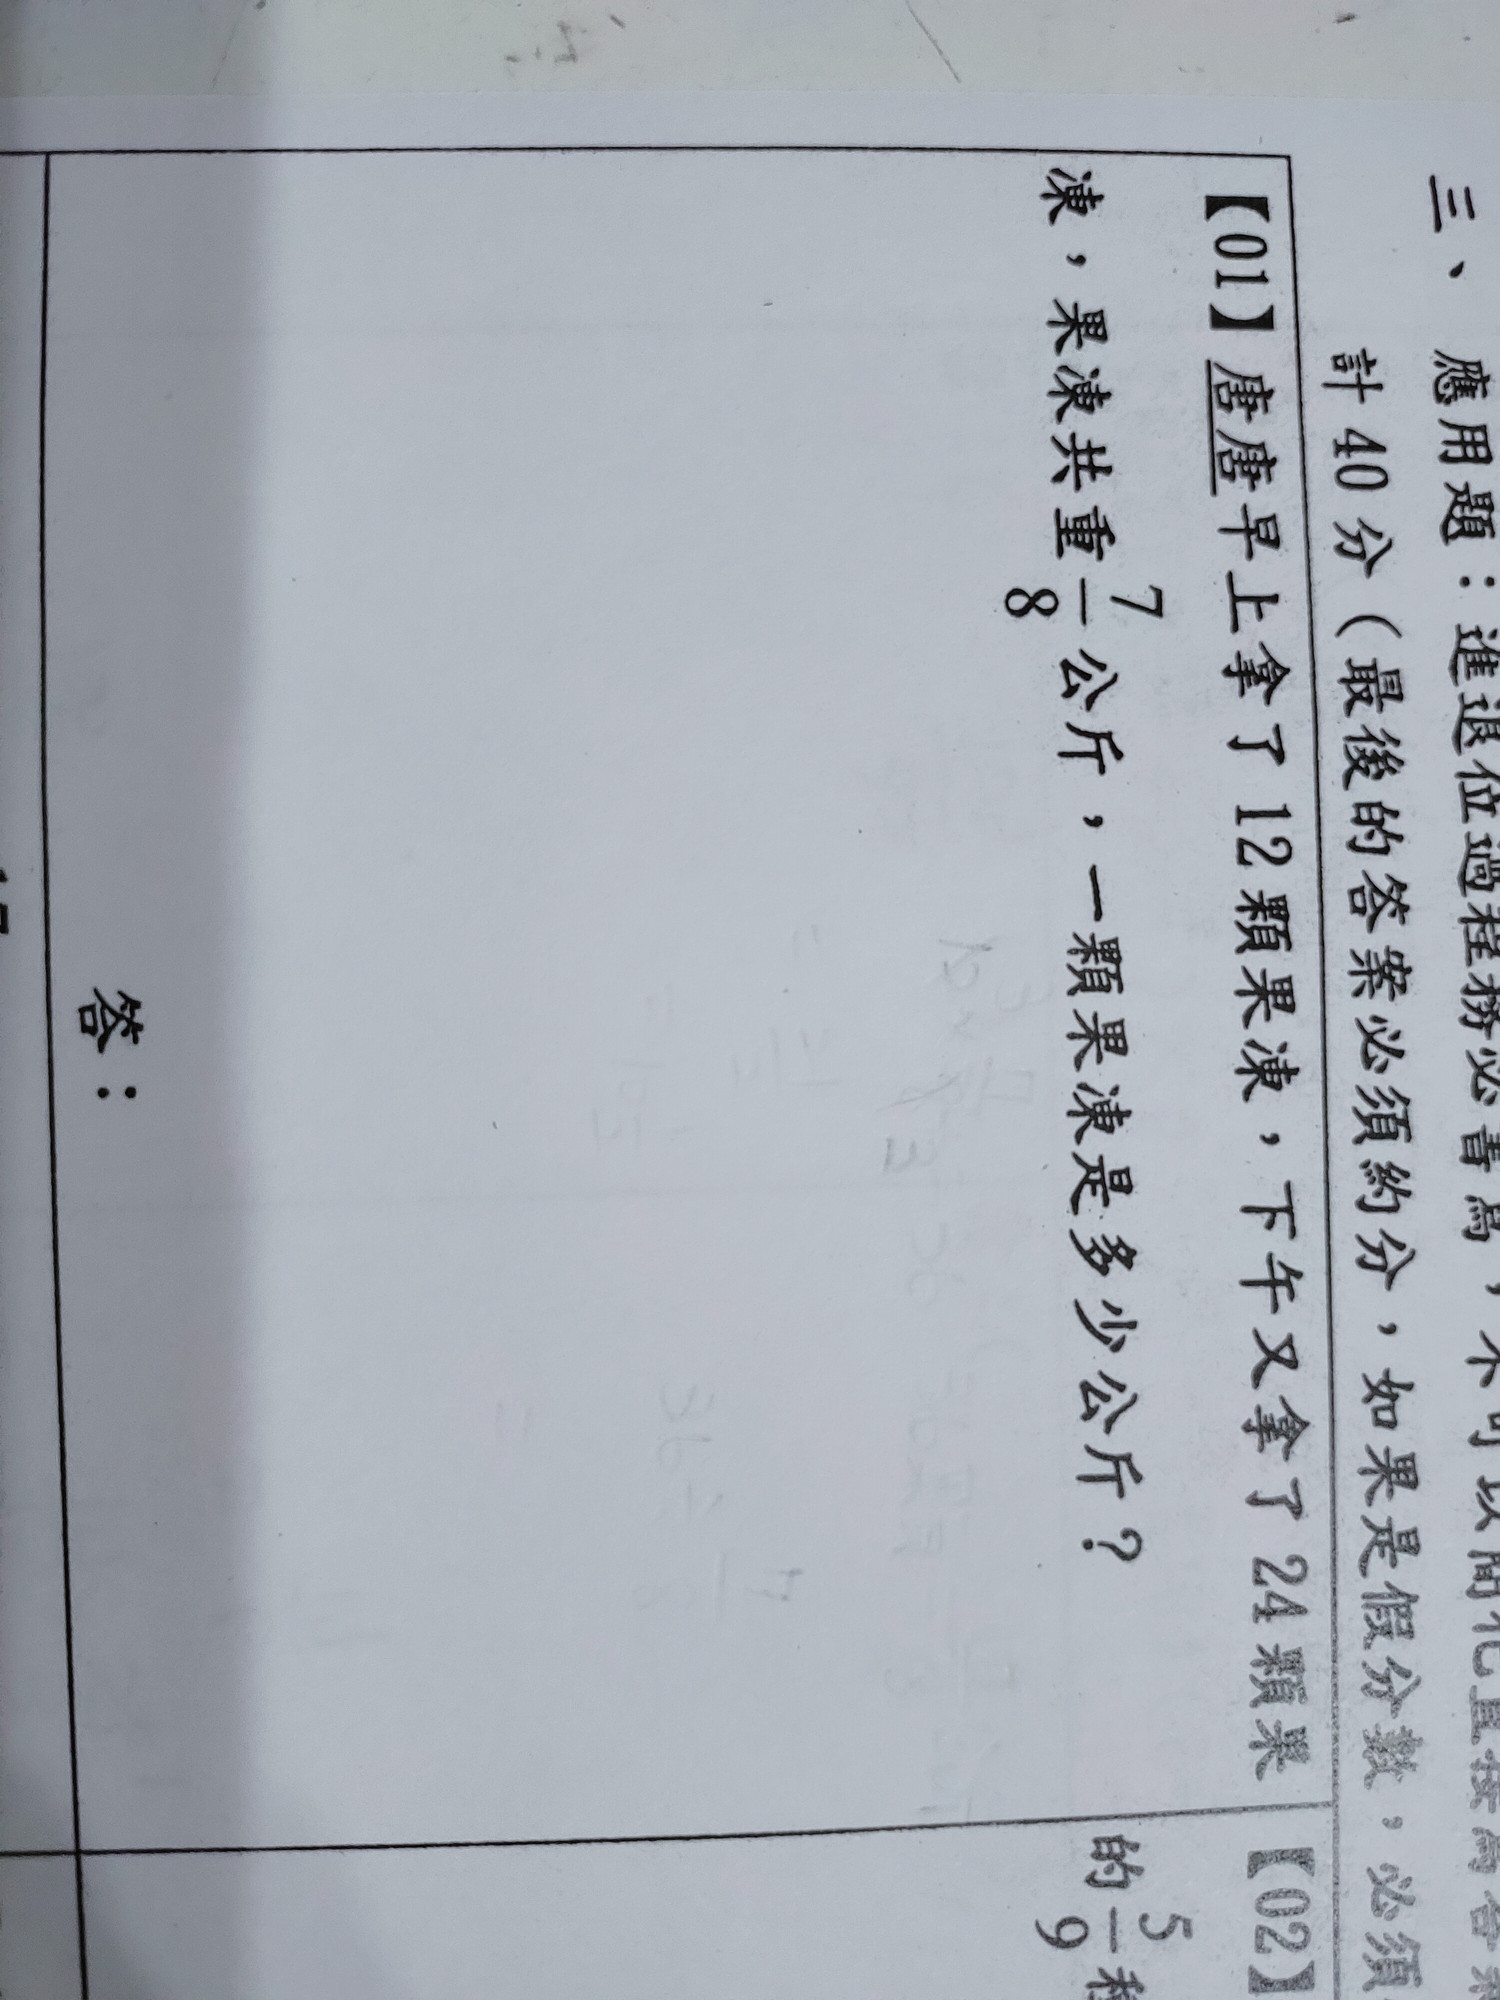 三、應用題：進退位過程務必書寫，不可以簡化直接寫答案
計40分（最後的答案必須約分，如果是假分數，必須
【01】唐唐早上拿了12顆果凍，下午又拿了24顆果
凍，果凍共重7/8公斤，一顆果凍是多少公斤？
答：
【02】
的5/9